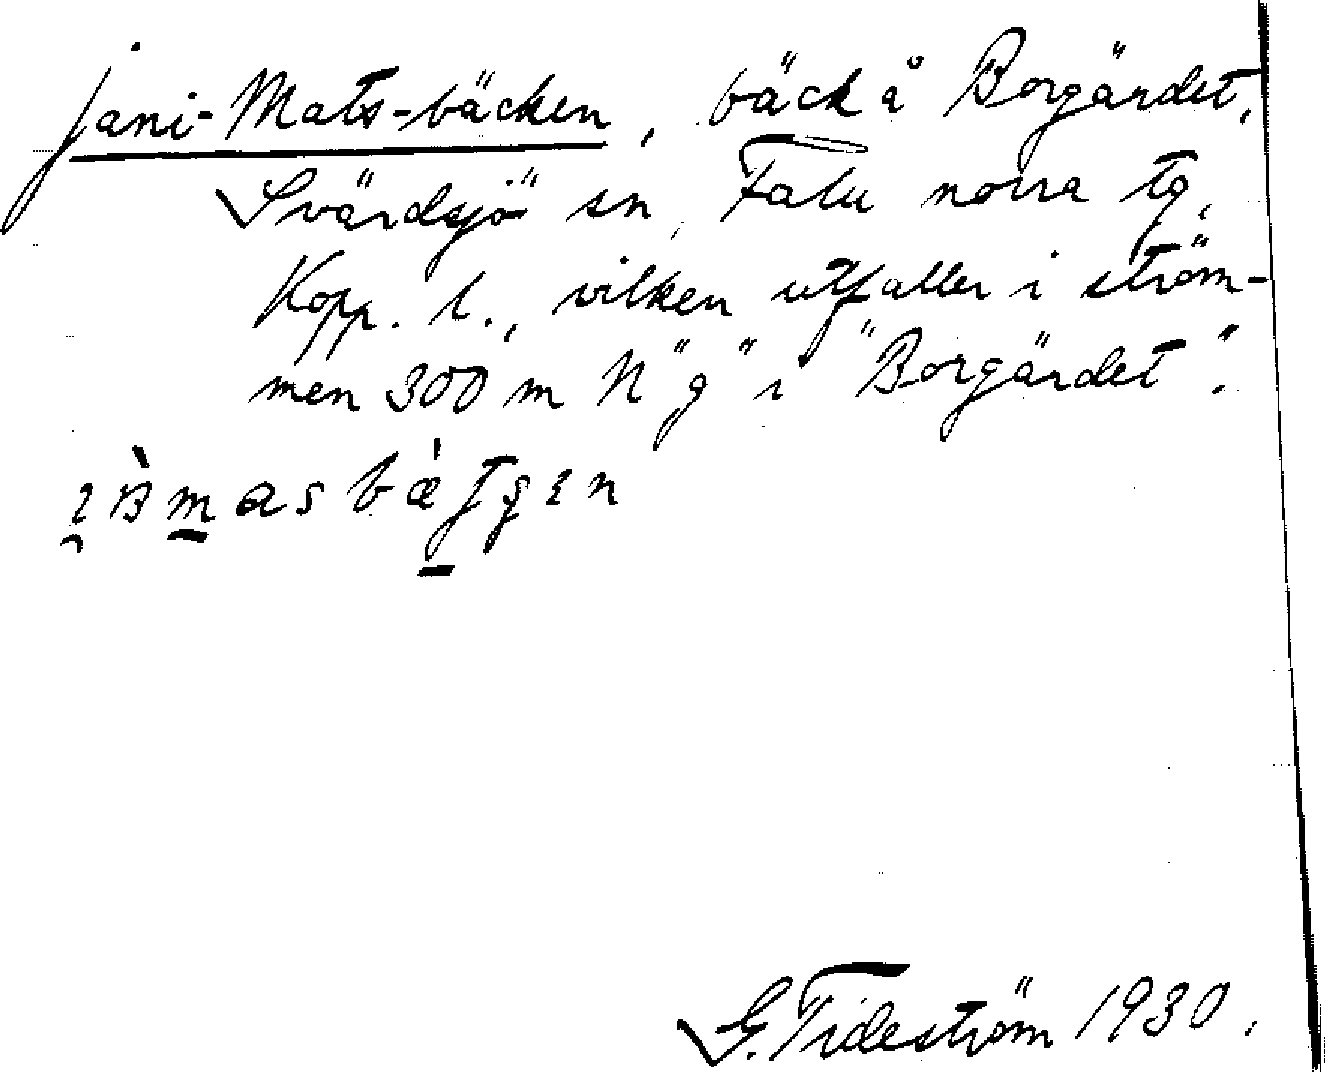 Jani-Mats-bäcken, bäck å Borgärdet,
Svärdsjö sn, Falu norra tg,
Kopp. l., vilken utfaller i ström-
men 300 m N "g" i "Borgärdet".
G. Tideström 1930.